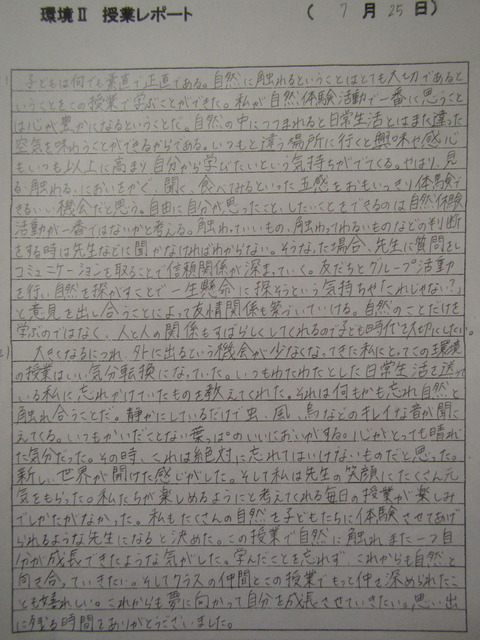 環境Ⅱ 授業レポート ( 7 月 25 日)
1) 子どもは何でも素直で正直である。自然に触れるということはとても大切であると
いうことをこの授業で学ぶことができた。私が自然体験活動で一番に思うこと
は心が豊かになるということだ。自然の中につつまれると日常生活とはまた違った
空気を味わうことができるからである。いつもと違う場所に行くと興味や感心
もいつも以上に高まり自分から学びたいという気持ちがでてくる。やはり、見
る、触わる、においをかぐ、聞く、食べてみるといった五感をおもいっきり体験で
きるいい機会だと思う。自由に自分が思ったこと、したいことをできるのは自然体験
活動が一番ではないかと考える。触わっていいもの、触わってわるいものなどの判断
をする時は先生などに聞かなければわからない。そうなった場合、先生に質問をし
コミュニケーションを取ることで信頼関係が深まっていく。友だちとグループ活動
を行い自然を探がすことで一生懸命に探そうという気持ちや「これじゃない?」
と意見を出し合うことによって友情関係も築いていける。自然のことだけを
学ぶのではなく、人と人の関係もすばらしくしてくれるので子ども時代を大切にしたい。
2) 大きくなるにつれ、外に出るという機会が少なくなってきた私にとってこの環境
の授業はいい気分転換になっていた。いつもわたわたとした日常生活を送って
いる私に忘れかけていたものを教えてくれた。それは何もかも忘れ自然と
触れ合うことだ。静かにしているだけで虫、風、鳥などのキレイな音が聞こ
えてくる。いつもかいだことない葉っぱのいいにおいがする。心がとっても晴れ
た気分だった。その時、これは絶対に忘れてはいけないものだと思った。
新しい世界が開けた感じがした。そして私は先生の笑顔にたくさん元
気をもらった。私たちが楽しめるようにと考えてくれる毎日の授業が楽しみ
でしかたがなかった。私もたくさんの自然を子どもたちに体験させてあげ
られるような先生になると決めた。この授業で自然に触れ、また一つ自
分が成長できたような気がした。学んだことを忘れず、これからも自然と
向き合っていきたい。そしてクラスの仲間とこの授業でもっと仲を深められたこ
とも嬉れしい。これからも夢に向かって自分を成長させていきたい。思い出
に残る時間をありがとうございました。